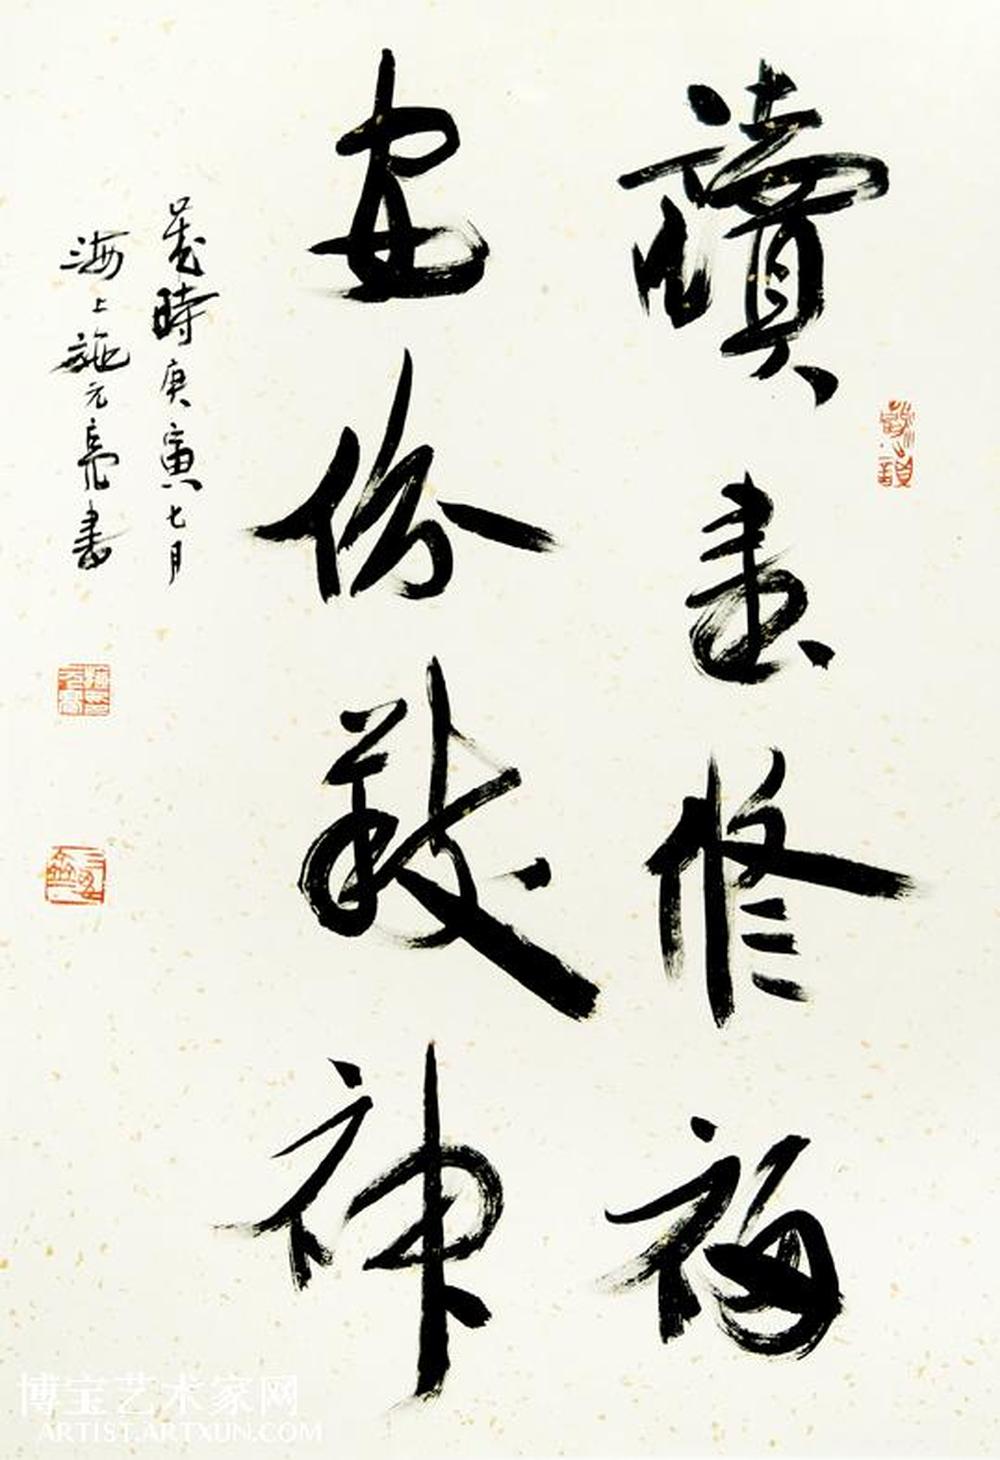 讀書修福
安份敬神
歲時庚寅七月
海上施元亮書
博宝艺术家网
ARTIST.ARTXUN.COM